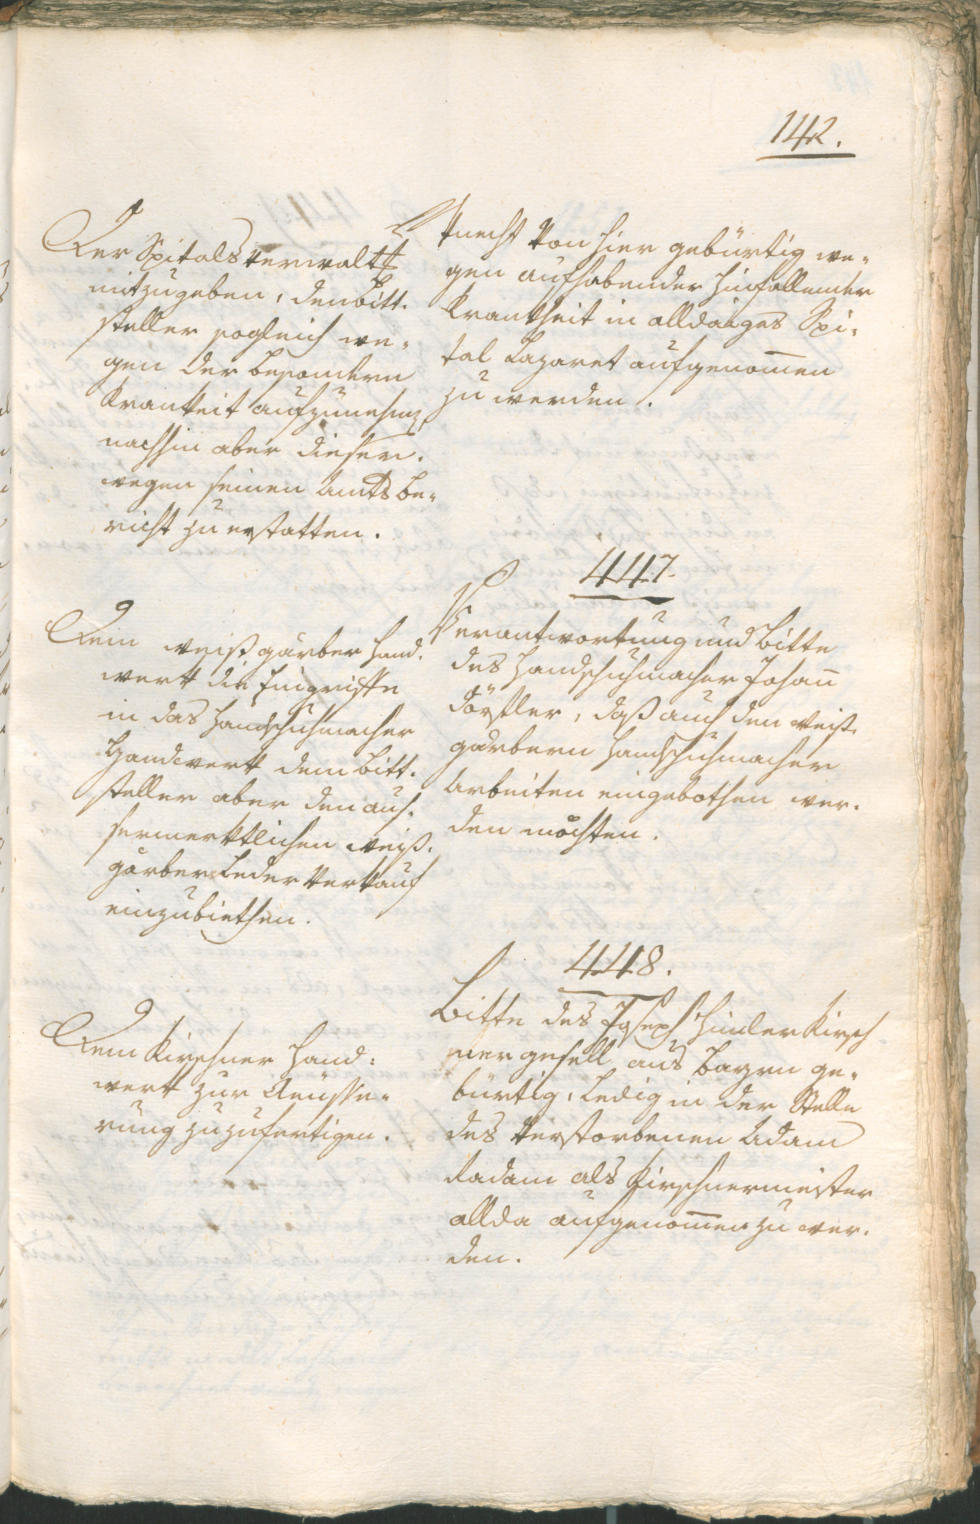 142.
Der Spitals Verwalt
mitzugeben, den Bitt-
steller sogleich we-
gen der besondern
Krankeit aufzunehmen,
nachhin aber dieser-
wegen seinen Amtsbe-
richt zu erstatten.
Knecht von hier gebürtig we-
gen aufhabender hinfallender
Krankheit in alldaiges Spi-
tal Lazaret aufgenom̄en
zu werden.
447.
Dem weißgärber Hand-
werk die Eingriffe
in das Handschuhmacher
Handwerk dem Bitt-
steller aber den aus-
sermerktlichen weiß-
gärber Leder Verkauf
einzubiethen.
Verantwortung und Bitte
des Handschuhmacher Johan̄
Dörfler, daß auch den weiß-
gärbern Handschuhmacher
Arbeiten eingebothen wer-
den möchten.
448.
Dem Kirschner Hand-
werk zur Aeusse-
rung zuzufertigen.
Bitte des Joseph Hinler Kirsch
nergesell aus Bayrn ge-
bürtig, Ledig in der Stelle
des Verstorbenen Adam
Radam als Kirschnermeister
allda aufgenom̄en zu wer-
den.